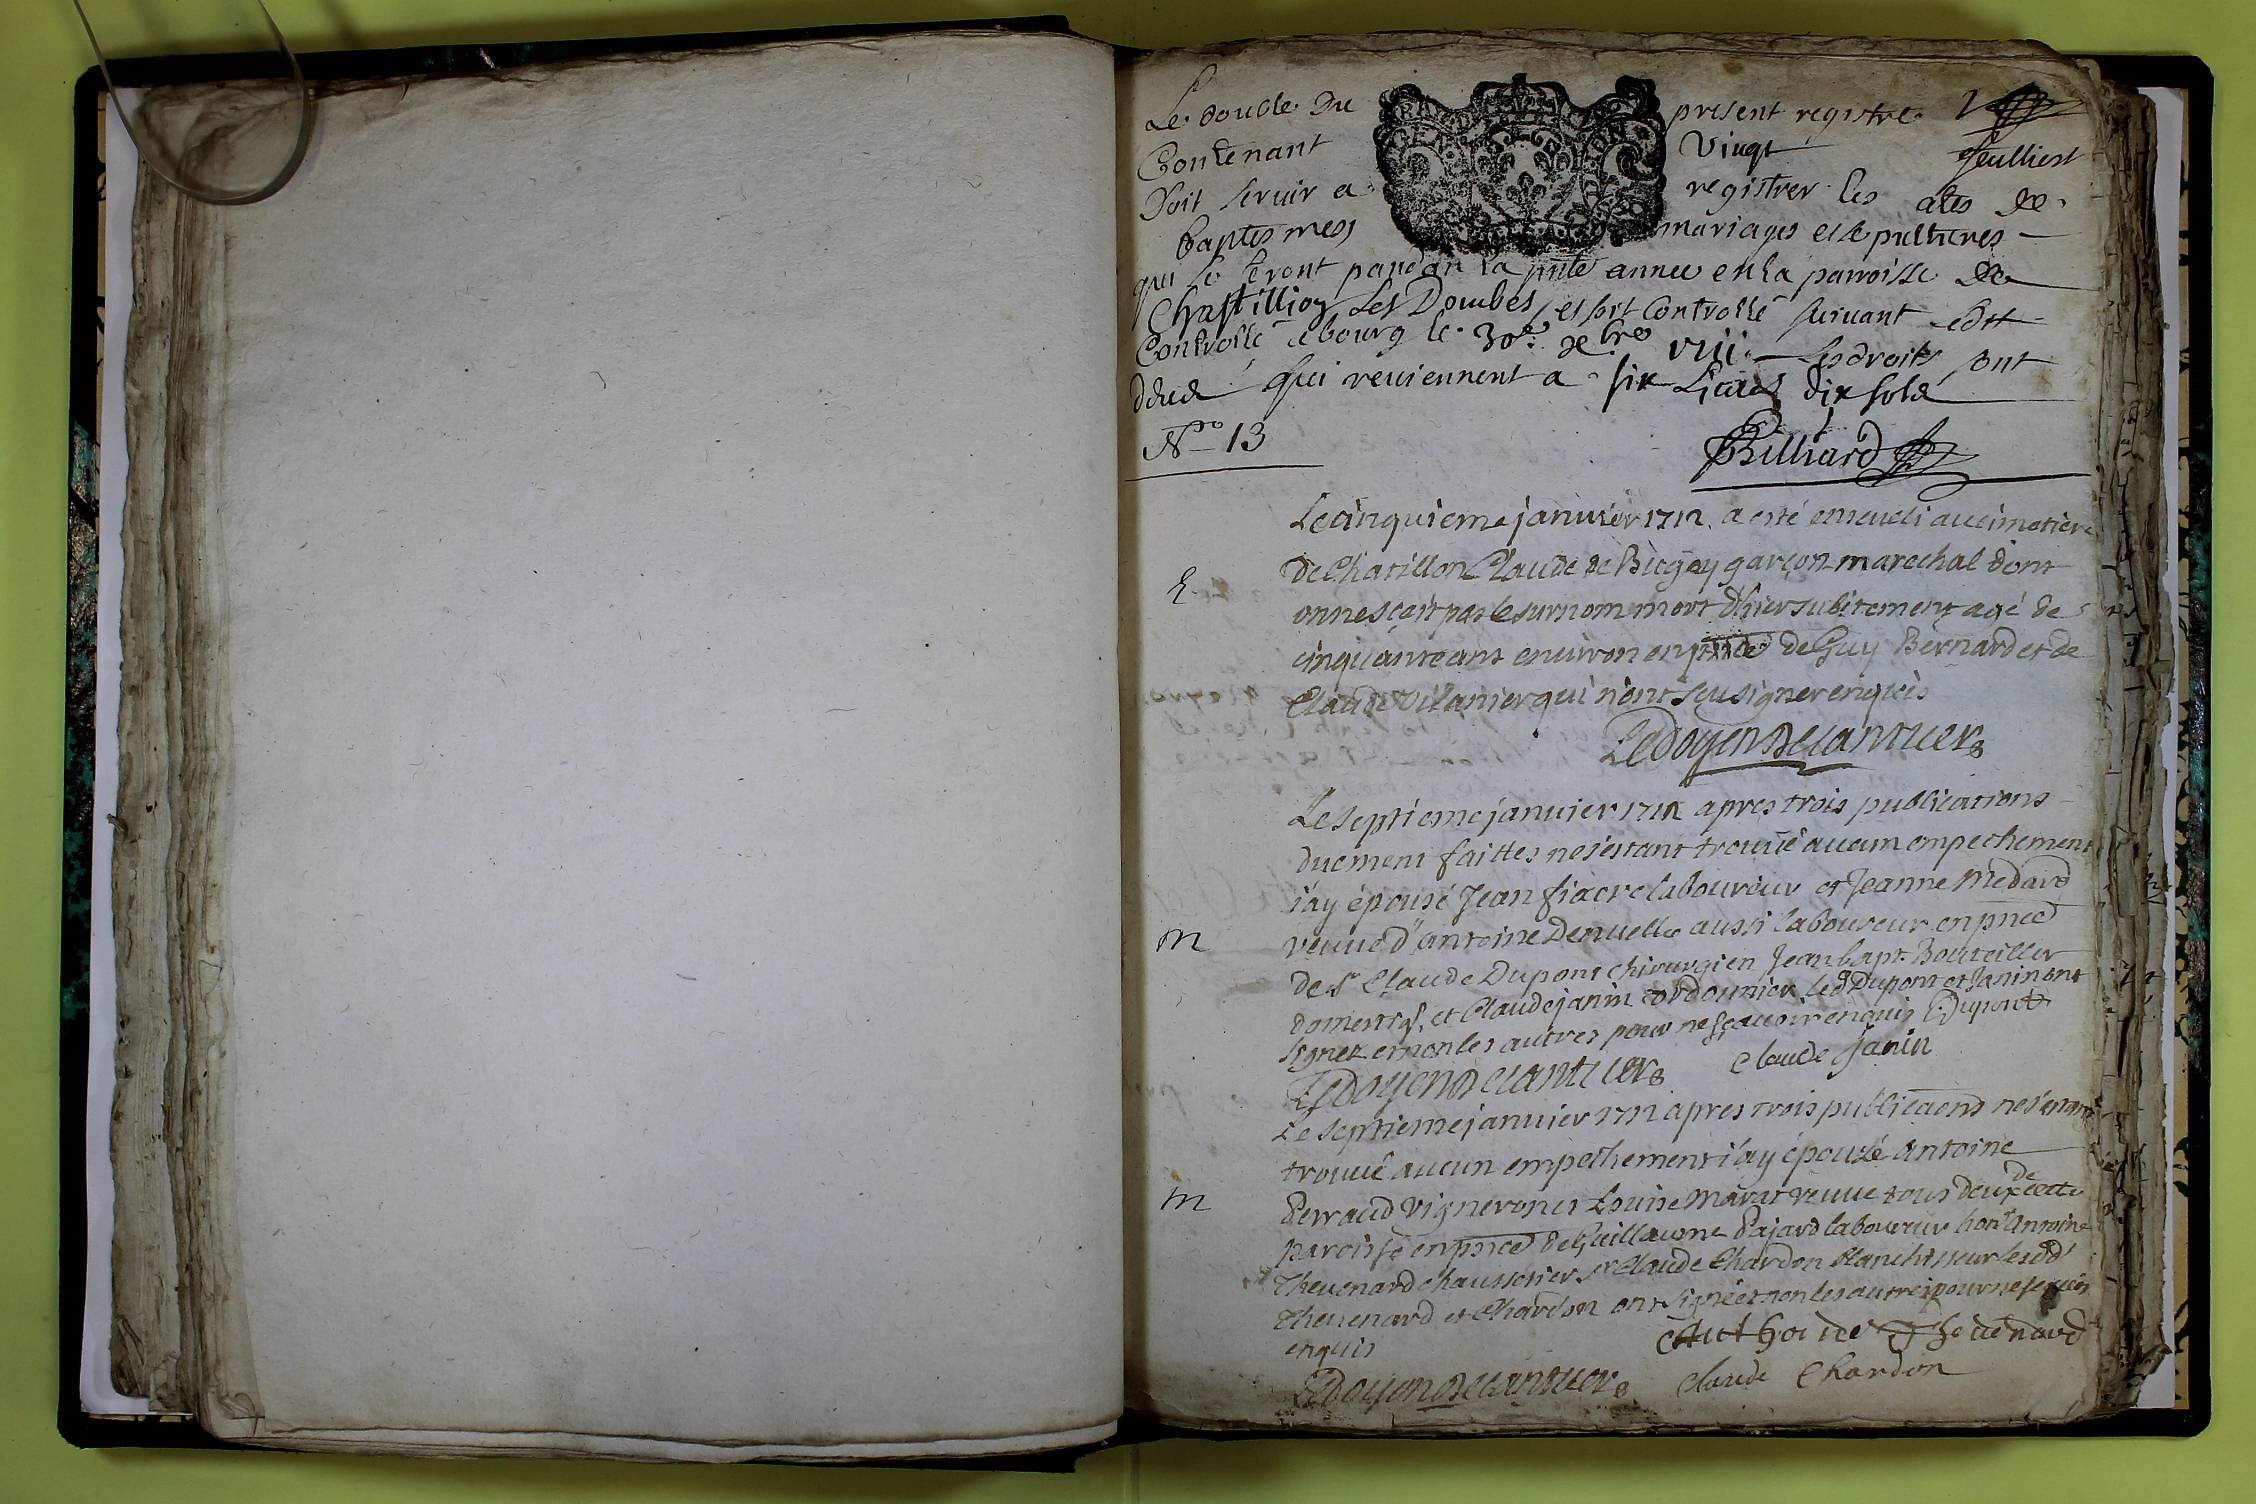 Le double du present registre 1
Contenant Vingt feulliest
Doit servir a registrer les actes de
baptesmes mariages et sepultures
qui se feront pandan la pnte annee en la parroisse de
Chastillion Les Dombes et soit Controllé suivant edit
Controllé a bourg le 30e xbre Les droits ont
qui reviennent a six Livres dix sols
No 13
Billiard
Le cinquieme janvier 1712 a esté enseveli au cimetiere
de Chatillon Claude de Bugey garçon marechal dont
E
on ne sçait pas le surnom mort d'hier subitement agé de
cinquante ans environ en pnce de Guy Bernard et de
Claude Vilanier qui n'ont sçu signer enquis
Le doyen
Le septieme janvier 1712 apres trois publications
duement faittes ne s'estant trouvé aucun empechement
j'ay épousé Jean fiacre laboureur et Jeanne Medard
m
veuve d'antoine Denuelle aussi laboureur en pnce
de Sr Claude Dupont chirurgien Jean bapt. Bouteiller
domestiq. et Claude janin cordonnier les d Dupont et Janin ont
signez et non les autres pour ne sçavoir enquis C Dupont
Claude janin
Le doyen
Le septieme janvier 1712 apres trois publicaons ne s'estant
trouvé aucun empechement j'ay épouzé antoine
m
Perraud vigneron et Louise Morat veuve tous deux de cette
paroisse en pnce de Guillaume Pajard laboureur hont antoine
Thevenard chaussetier Sr Claude Chardon blanchisseur lesdd
Thevenard et Chardon ont signé et non les autres pour ne sçavoir
enquis
Anthoine Thevenard
Le doyen Claude Chardon